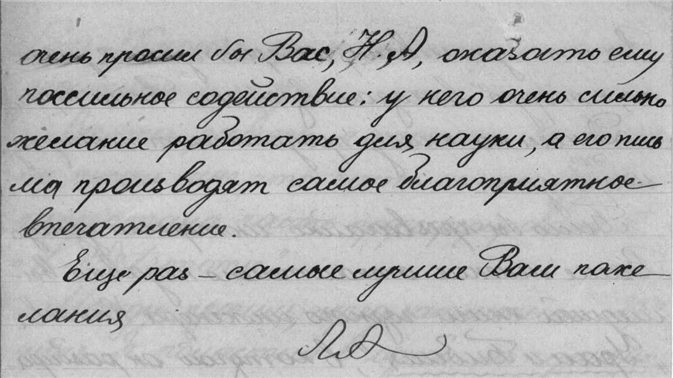 очень просил бы Вас, Н.А, оказать ему
посильное содействие: у него очень сильно
желание работать для науки, а его пись
ма производят самое благоприятное
впечатление.
Еще раз – самые лучшие Вам поже-
лания